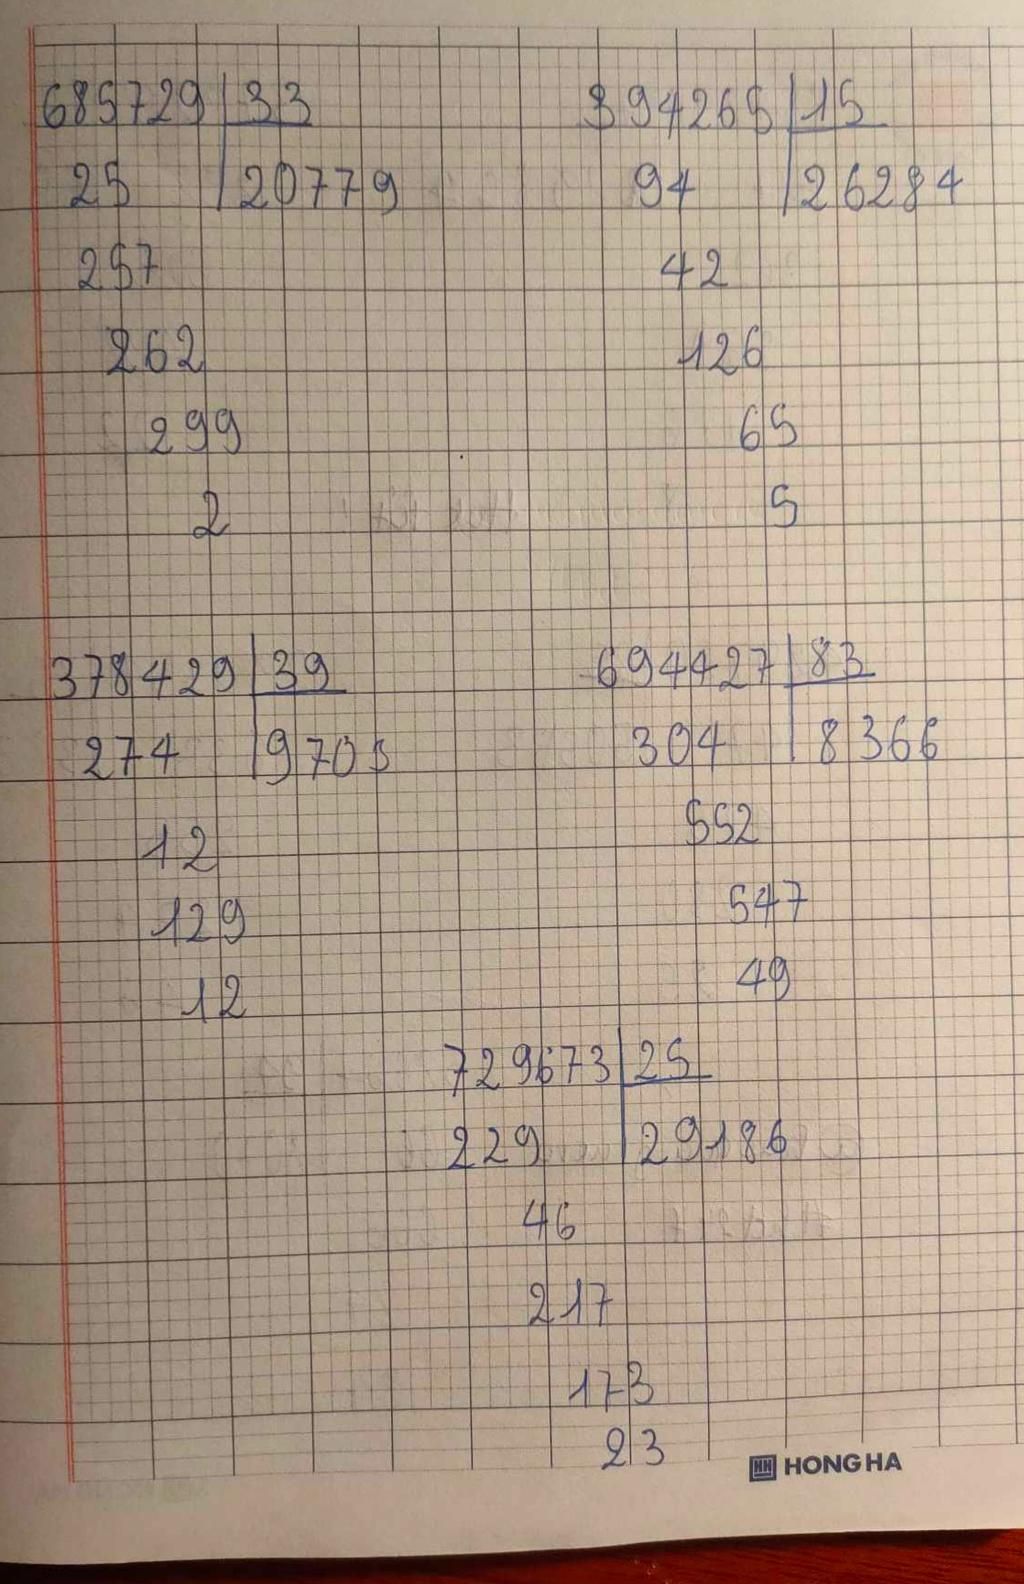 685729 33
25 20779
257
262
299
2
394265 15
94 26284
42
126
65
5
378429 39
274 9703
12
129
12
694427 83
304 8366
552
547
49
729673 25
229 29186
46
217
173
23
HONG HA